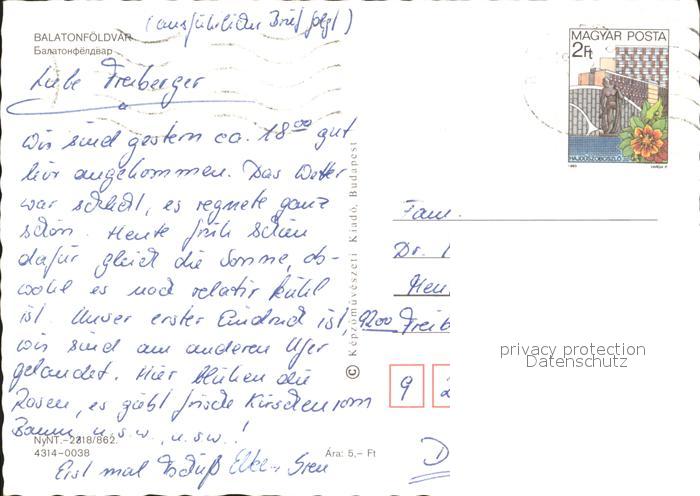 (ausführlicher Brief folgt)
BALATONFÖLDVÁR
Балатонфёлдвар
MAGYAR POSTA
2Ft
HAJDÚSZOBOSZLÓ
Liebe Freiberger
Wir sind gestern ca. 18⁰⁰ gut
hier angekommen. Das Wetter
war schlecht, es regnete ganz
schön. Heute früh schien
dafür gleich die Sonne, ob-
wohl es noch relativ kühl
ist. Unser erster Eindruck ist,
wir sind am anderen Ufer
gelandet. Hier blühen die
Rosen, es giebt frische Kirschen vom
Baum, u.s.w., u.s.w.!
NyNT.–2318/862.
4314-0038
Ára: 5,– Ft
Erst mal Tschüß
© Képzőművészeti Kiadó, Budapest
Fam.
Dr.
9200 Freib
9 2
D
privacy protection
Datenschutz